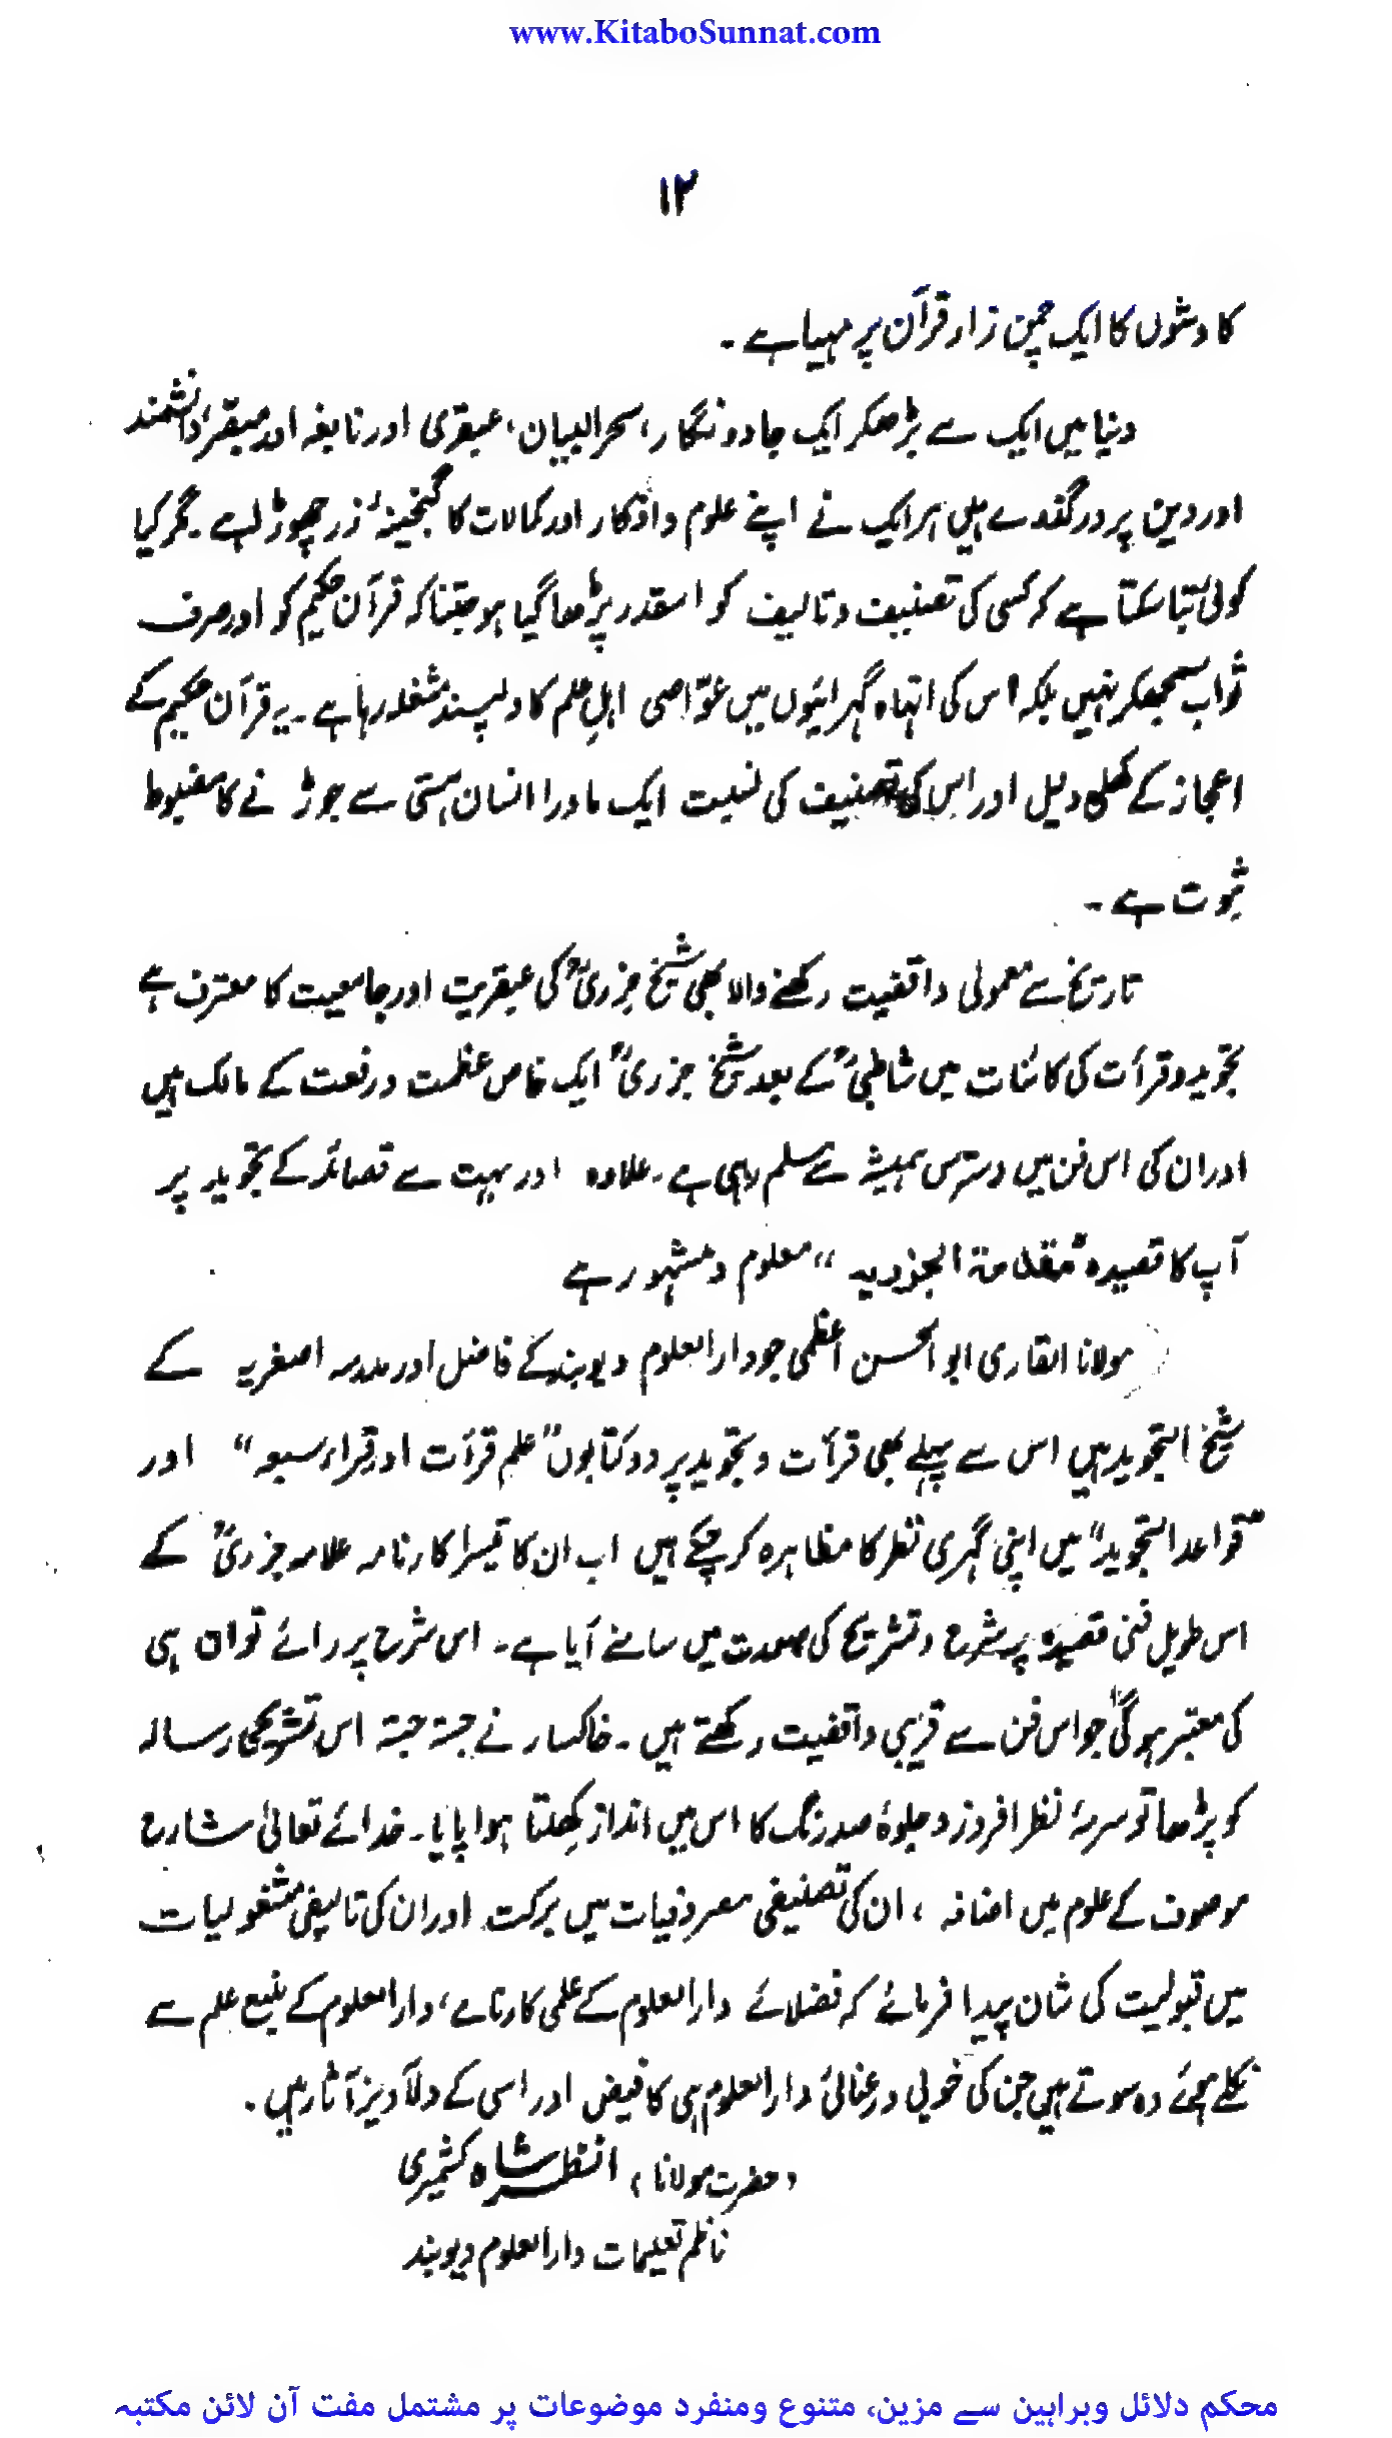 www.KitaboSunnat.com
۱۲
کاوشوں کا ایک چمن زار قرآن پر مہیا ہے ۔
دنیا میں ایک سے بڑھکر ایک جادو نگار، سحر البیان، عبقری اور نابغہ اور مبصّر، دانشمند
اور دین پرور گذرے ہیں ہر ایک نے اپنے علوم و افکار اور کمالات کا گنجینۂ زر چھوڑا ہے ۔ مگر کیا
کوئی بتا سکتا ہے کہ کسی کی تصنیف و تالیف کو اسقدر پڑھا گیا ہو جتنا کہ قرآن حکیم کو اور صرف
ثواب سمجھکر نہیں بلکہ اس کی اتھاہ گہرائیوں میں غوّاصی اہلِ علم کا دلپسند مشغلہ رہا ہے ۔ یہ قرآن حکیم کے
اعجاز کے کھلی دلیل اور اس کی تصنیف کی نسبت ایک ماورا انسان ہستی سے جوڑ نے کا مضبوط
ثبوت ہے ۔
تاریخ سے معمولی واقفیت رکھنے والا بھی شیخ جزریؒ کی عبقریت اور جامعیت کا معترف ہے
تجوید و قرأت کی کائنات میں شاطبیؒ کے بعد شیخ جزریؒ ایک خاص عظمت و رفعت کے مالک ہیں
اور ان کی اس فن میں دسترس ہمیشہ سے مسلم رہی ہے ۔ علاوہ اور بہت سے قصائد کے تجوید پر
آپ کا قصیدہ "مقدمۃ الجزریہ" معلوم و مشہور ہے
مولانا القاری ابو الحسن اعظمی جو دار العلوم دیوبند کے فاضل اور مدرسہ اصغریہ کے
شیخ التجوید ہیں اس سے پہلے بھی قرأت و تجوید پر دو کتابوں "علم قرأت اور قراء سبعہ" اور
"قواعد التجوید" میں اپنی گہری نظر کا مظاہرہ کر چکے ہیں اب ان کا تیسرا کارنامہ علامہ جزریؒ کے
اس طویل فنی قصیدہ پر شرح و تشریح کی صورت میں سامنے آیا ہے ۔ اس شرح پر رائے تو ان ہی
کی معتبر ہو گی جو اس فن سے قریبی واقفیت رکھتے ہیں ۔ خاکسار نے جستہ جستہ اس تشریحی رسالہ
کو پڑھا تو سرمۂ نظر افروز و جلوۂ صد رنگ کا اس میں انداز کھلتا ہوا پایا ۔ خدائے تعالیٰ شارح
موصوف کے علوم میں اضافہ ، ان کی تصنیفی مصروفیات میں برکت اور ان کی تالیفی مشغولیات
میں قبولیت کی شان پیدا فرمائے کہ فضلائے دار العلوم کے علمی کارنامے، دار العلوم کے منبع علم سے
نکلے ہوئے وہ سوتے ہیں جن کی خوبی و رعنائی دار العلوم ہی کا فیض اور اسی کے دلآویز آثار ہیں ۔
(حضرت مولانا) انظر شاہ کشمیری
ناظم تعلیمات دار العلوم دیوبند
محکم دلائل وبراہین سے مزین، متنوع ومنفرد موضوعات پر مشتمل مفت آن لائن مکتبہ